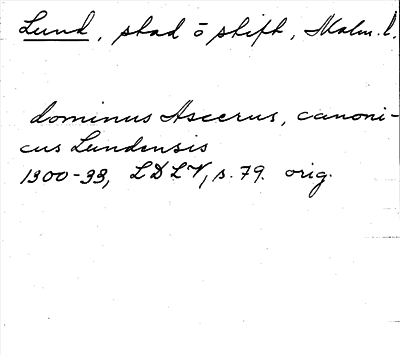 Lund, stad o stift, Malm. l.
dominus Ascerus, canoni-
cus Lundensis
1300-33, LDLV, s. 79. orig.